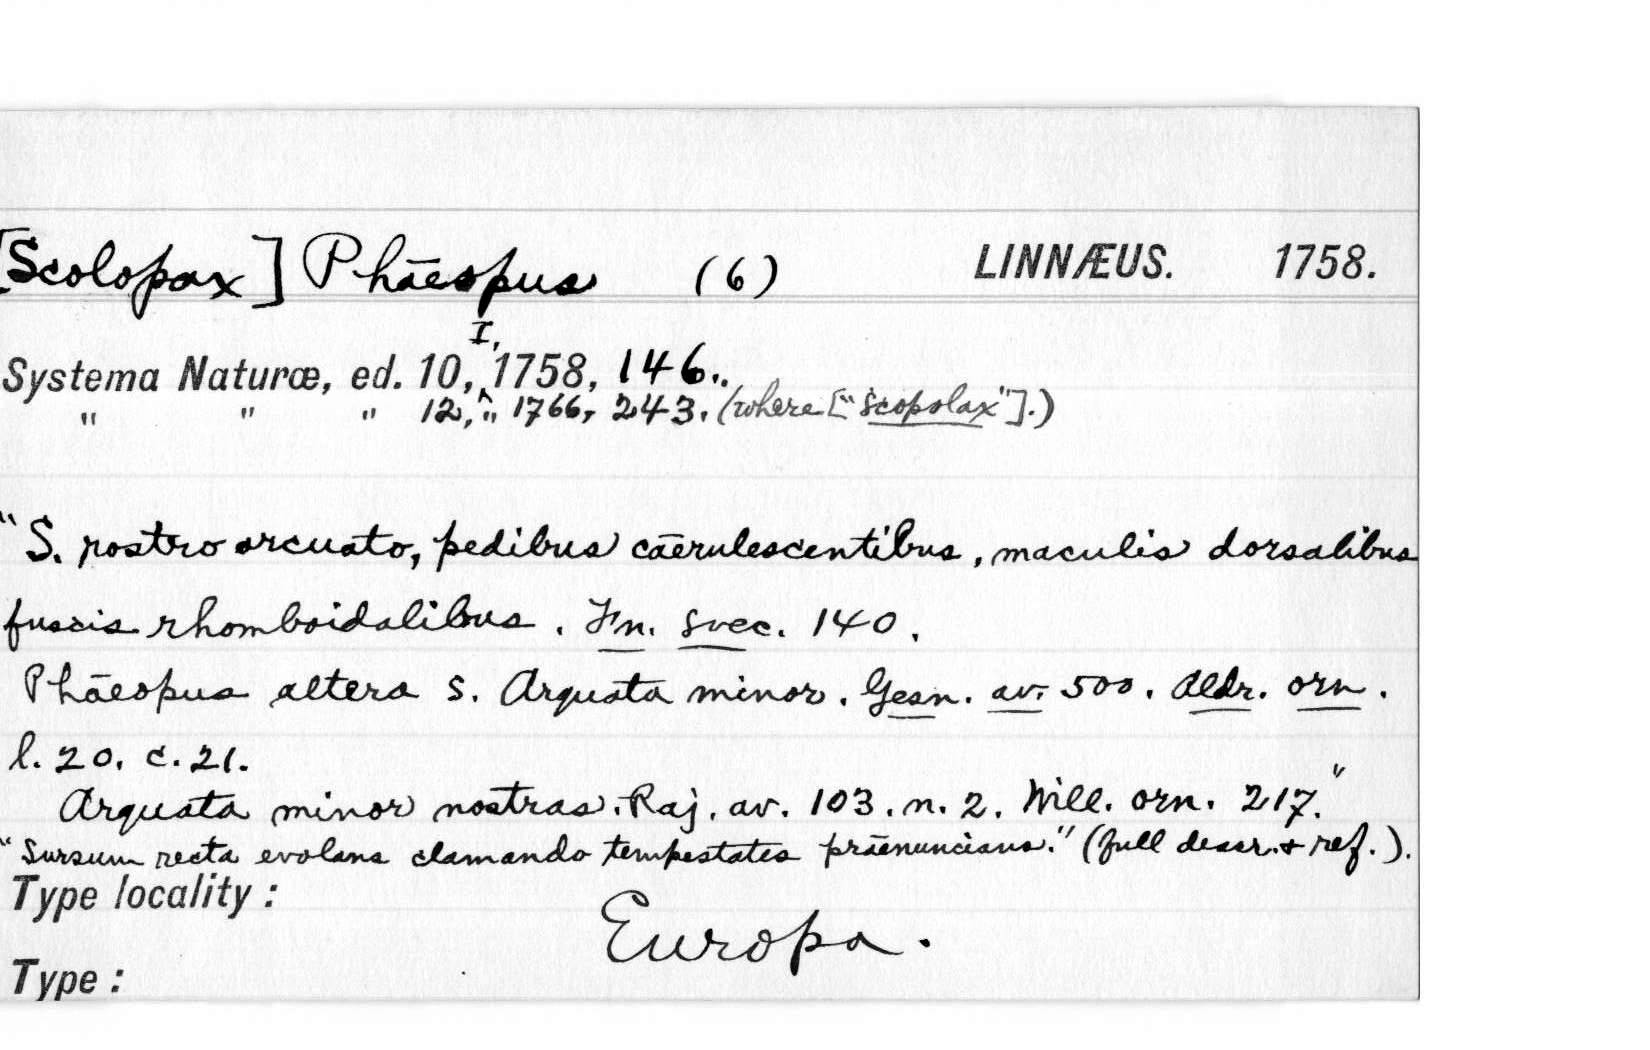 [Scolopax] Phāeopus (6) LINNÆUS. 1758.
I,
Systema Naturæ, ed. 10, ^ 1758, 146..
" " " 12, " 1766, 243. (where ["Scopolax"].)
"S. rostro arcuato, pedibus cāerulescentibus, maculis dorsalibus
fuscis rhomboidalibus. Fn. svec. 140.
Phāeopus altera s. Arquata minor. Gesn. av. 500. Aldr. orn.
l. 20. c. 21.
Arquata minor nostras. Raj. av. 103. n. 2. Will. orn. 217."
"Sursum recta evolans clamando tempestates prāenuncians." (full descr. & ref.).
Type locality:
Europa.
Type: